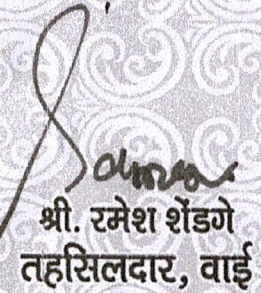 श्री. रमेश शेंडगे
तहसिलदार, वाई